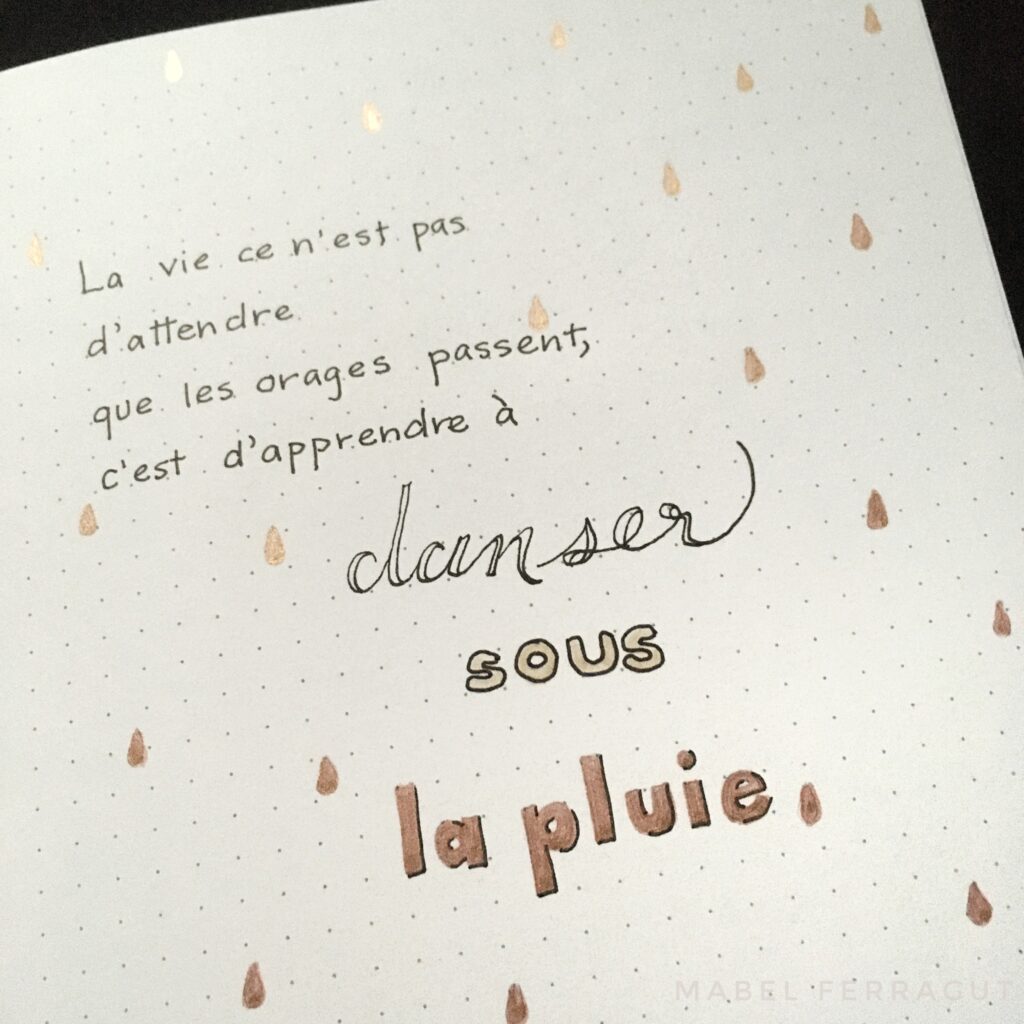 La vie ce n'est pas
d'attendre
que les orages passent,
c'est d'apprendre à
danser
sous
la pluie
MABEL FERRAGUT